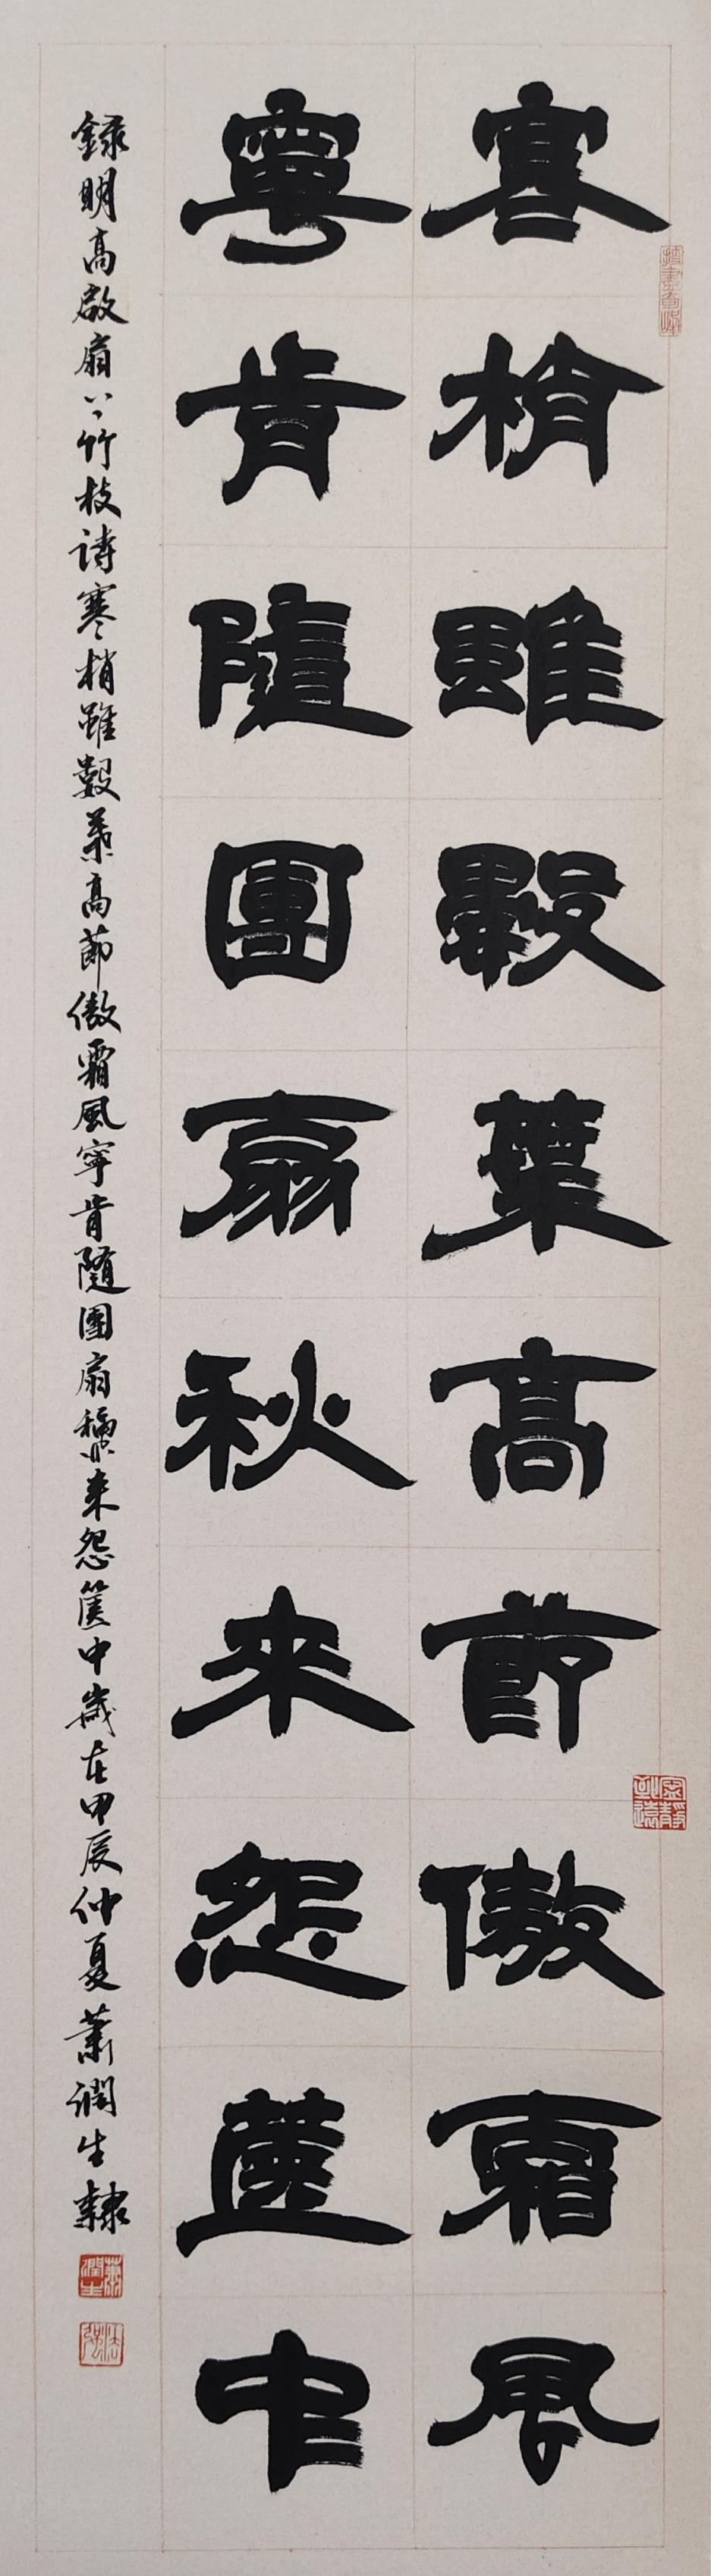 寒梢雖數葉高節傲霜風
寧肯隨團扇秋來怨篋中
録明高啟扇上竹枝詩寒梢雖數葉高節傲霜風寧肯隨團扇穐來怨篋中歲在甲辰仲夏蕭潤生隸
寧靜致遠
蕭潤生